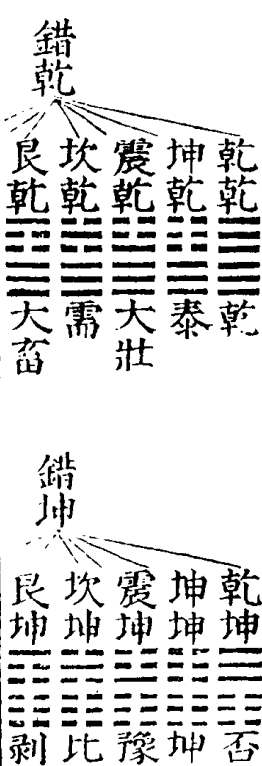 錯乾
乾乾
乾
坤乾
泰
震乾
大壯
坎乾
需
艮乾
大畜
錯坤
乾坤
否
坤坤
坤
震坤
豫
坎坤
比
艮坤
剝